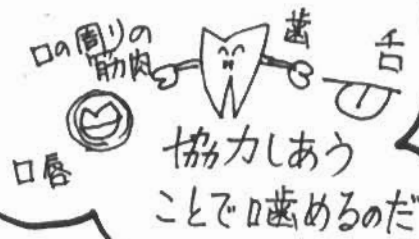 口の周りの
筋肉
歯
舌
口唇
協力しあう
ことで噛めるのだ